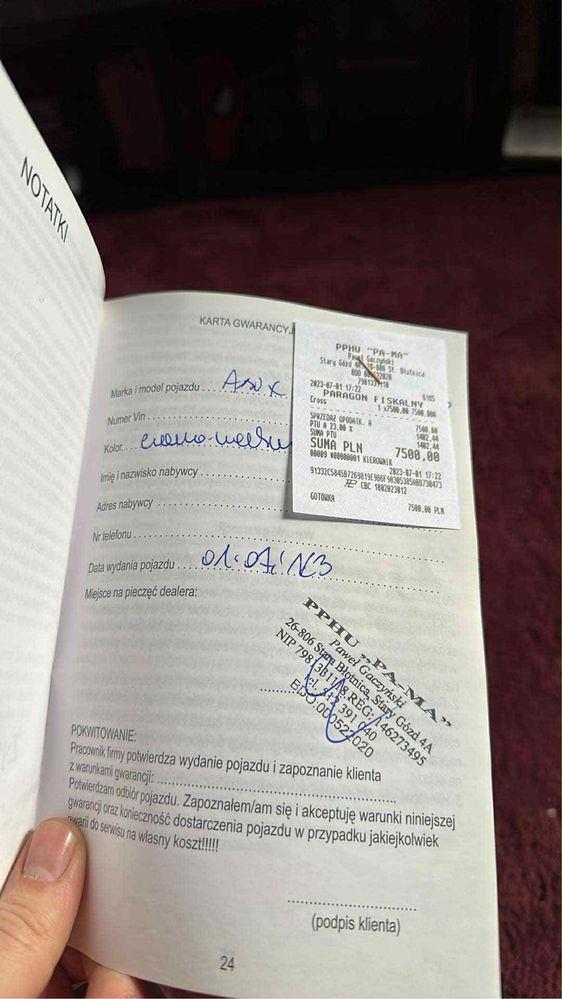 NOTATKI
KARTA GWARANCYJ
Marka i model pojazdu
Numer Vin
Kolor
Imię i nazwisko nabywcy
Adres nabywcy
Nr telefonu
Data wydania pojazdu
Miejsce na pieczęć dealera:
PPHU "PA-MA"
Paweł Gaczyński
Stary Gózd
2023-07-01 17:22
PARAGON FISKALNY
Cross 1 x7500,00 7500,00A
SPRZEDAŻ OPODATK. A 7500,00
PTU A 23,00 % 1402,44
SUMA PTU 1402,44
SUMA PLN 7500,00
00009 #00000001 KIEROWNIK 2023-07-01 17:22
CBC 1802023012
GOTÓWKA 7500,00 PLN
PPHU „PA-MA"
Paweł Gaczyński
26-806 Stara Błotnica, Stary Gózd 4A
POKWITOWANIE:
Pracownik firmy potwierdza wydanie pojazdu i zapoznanie klienta
z warunkami gwarancji:
Potwierdzam odbiór pojazdu. Zapoznałem/am się i akceptuję warunki niniejszej
gwarancji oraz konieczność dostarczenia pojazdu w przypadku jakiejkolwiek
awarii do serwisu na własny koszt!!!!!
(podpis klienta)
24